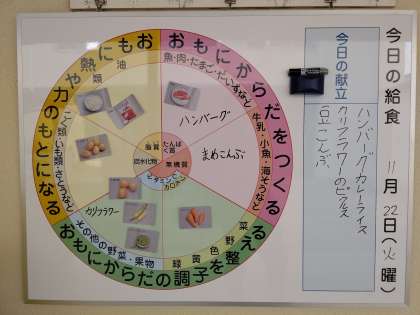 今日の給食　11月22日(火曜)
今日の献立
ハンバーグカレーライス
カリフラワーのピクルス
豆こんぶ
おもにからだをつくる
魚・肉・たまご・だいずなど
ハンバーグ
牛乳・小魚・海そうなど
まめこんぶ
おもに熱や力のもとになる
油類
こく類・いも類・さとうなど
おもにからだの調子を整える
緑黄色野菜
その他の野菜・果物
カリフラワー
脂質
たんぱく質
炭水化物
無機質
ビタミン
カロテン